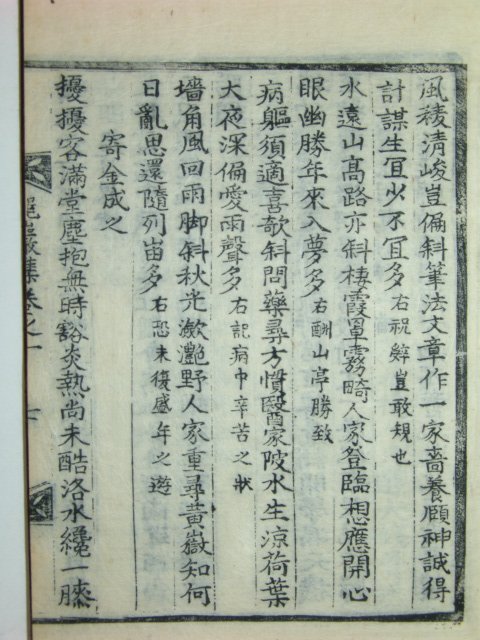 風稜清峻豈偏斜筆法文章作一家嗇養頤神誠得
計謀生宜少不宜多右祝辭豈敢規也
水遠山高路亦斜棲霞罩霧畸人家登臨想應開心
眼幽勝年來入夢多右酬山亭勝致
病軀須適喜欹斜問藥尋方慣醫家陂水生涼荷葉
大夜深偏愛雨聲多右記病中辛苦之狀
墻角風回雨脚斜秋光瀲灧野人家重尋黃嶽知何
日亂思還隨列岫多右恐未復盛年之遊
寄金成之
擾擾客滿堂塵抱無時豁炎熱尚未酷洛水纔一膝
巖集卷之一